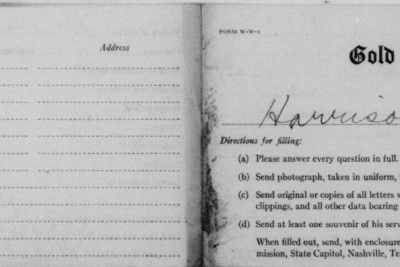 Address
FORM W-W-1
Gold
Harriso
Directions for filling:
(a) Please answer every question in full.
(b) Send photograph, taken in uniform,
(c) Send original or copies of all letters w
clippings, and all other data bearing
(d) Send at least one souvenir of his serv
When filled out, send, with enclosure
mission, State Capitol, Nashville, Te